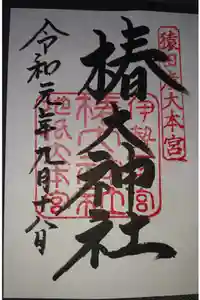 猿田彦大本宮
伊勢一宮
椿大神社
椿大神社
地祇大本宮
令和元年九月十八日